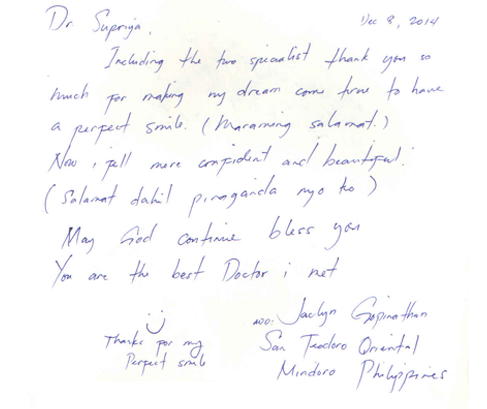 Dr. Supriya,
Dec 8, 2014
Including the two specialist thank you so
much for making my dream come true to have
a perfect smile. (Maraming salamat.)
Now i fell more confident and beautiful.
(Salamat dahil pinaganda nyo ko)
May God continue bless you
You are the best Doctor i met
:)
Thanks for my
Perfect smile
Jaclyn Gopinathan
San Teodoro Oriental
Mindoro Philippines